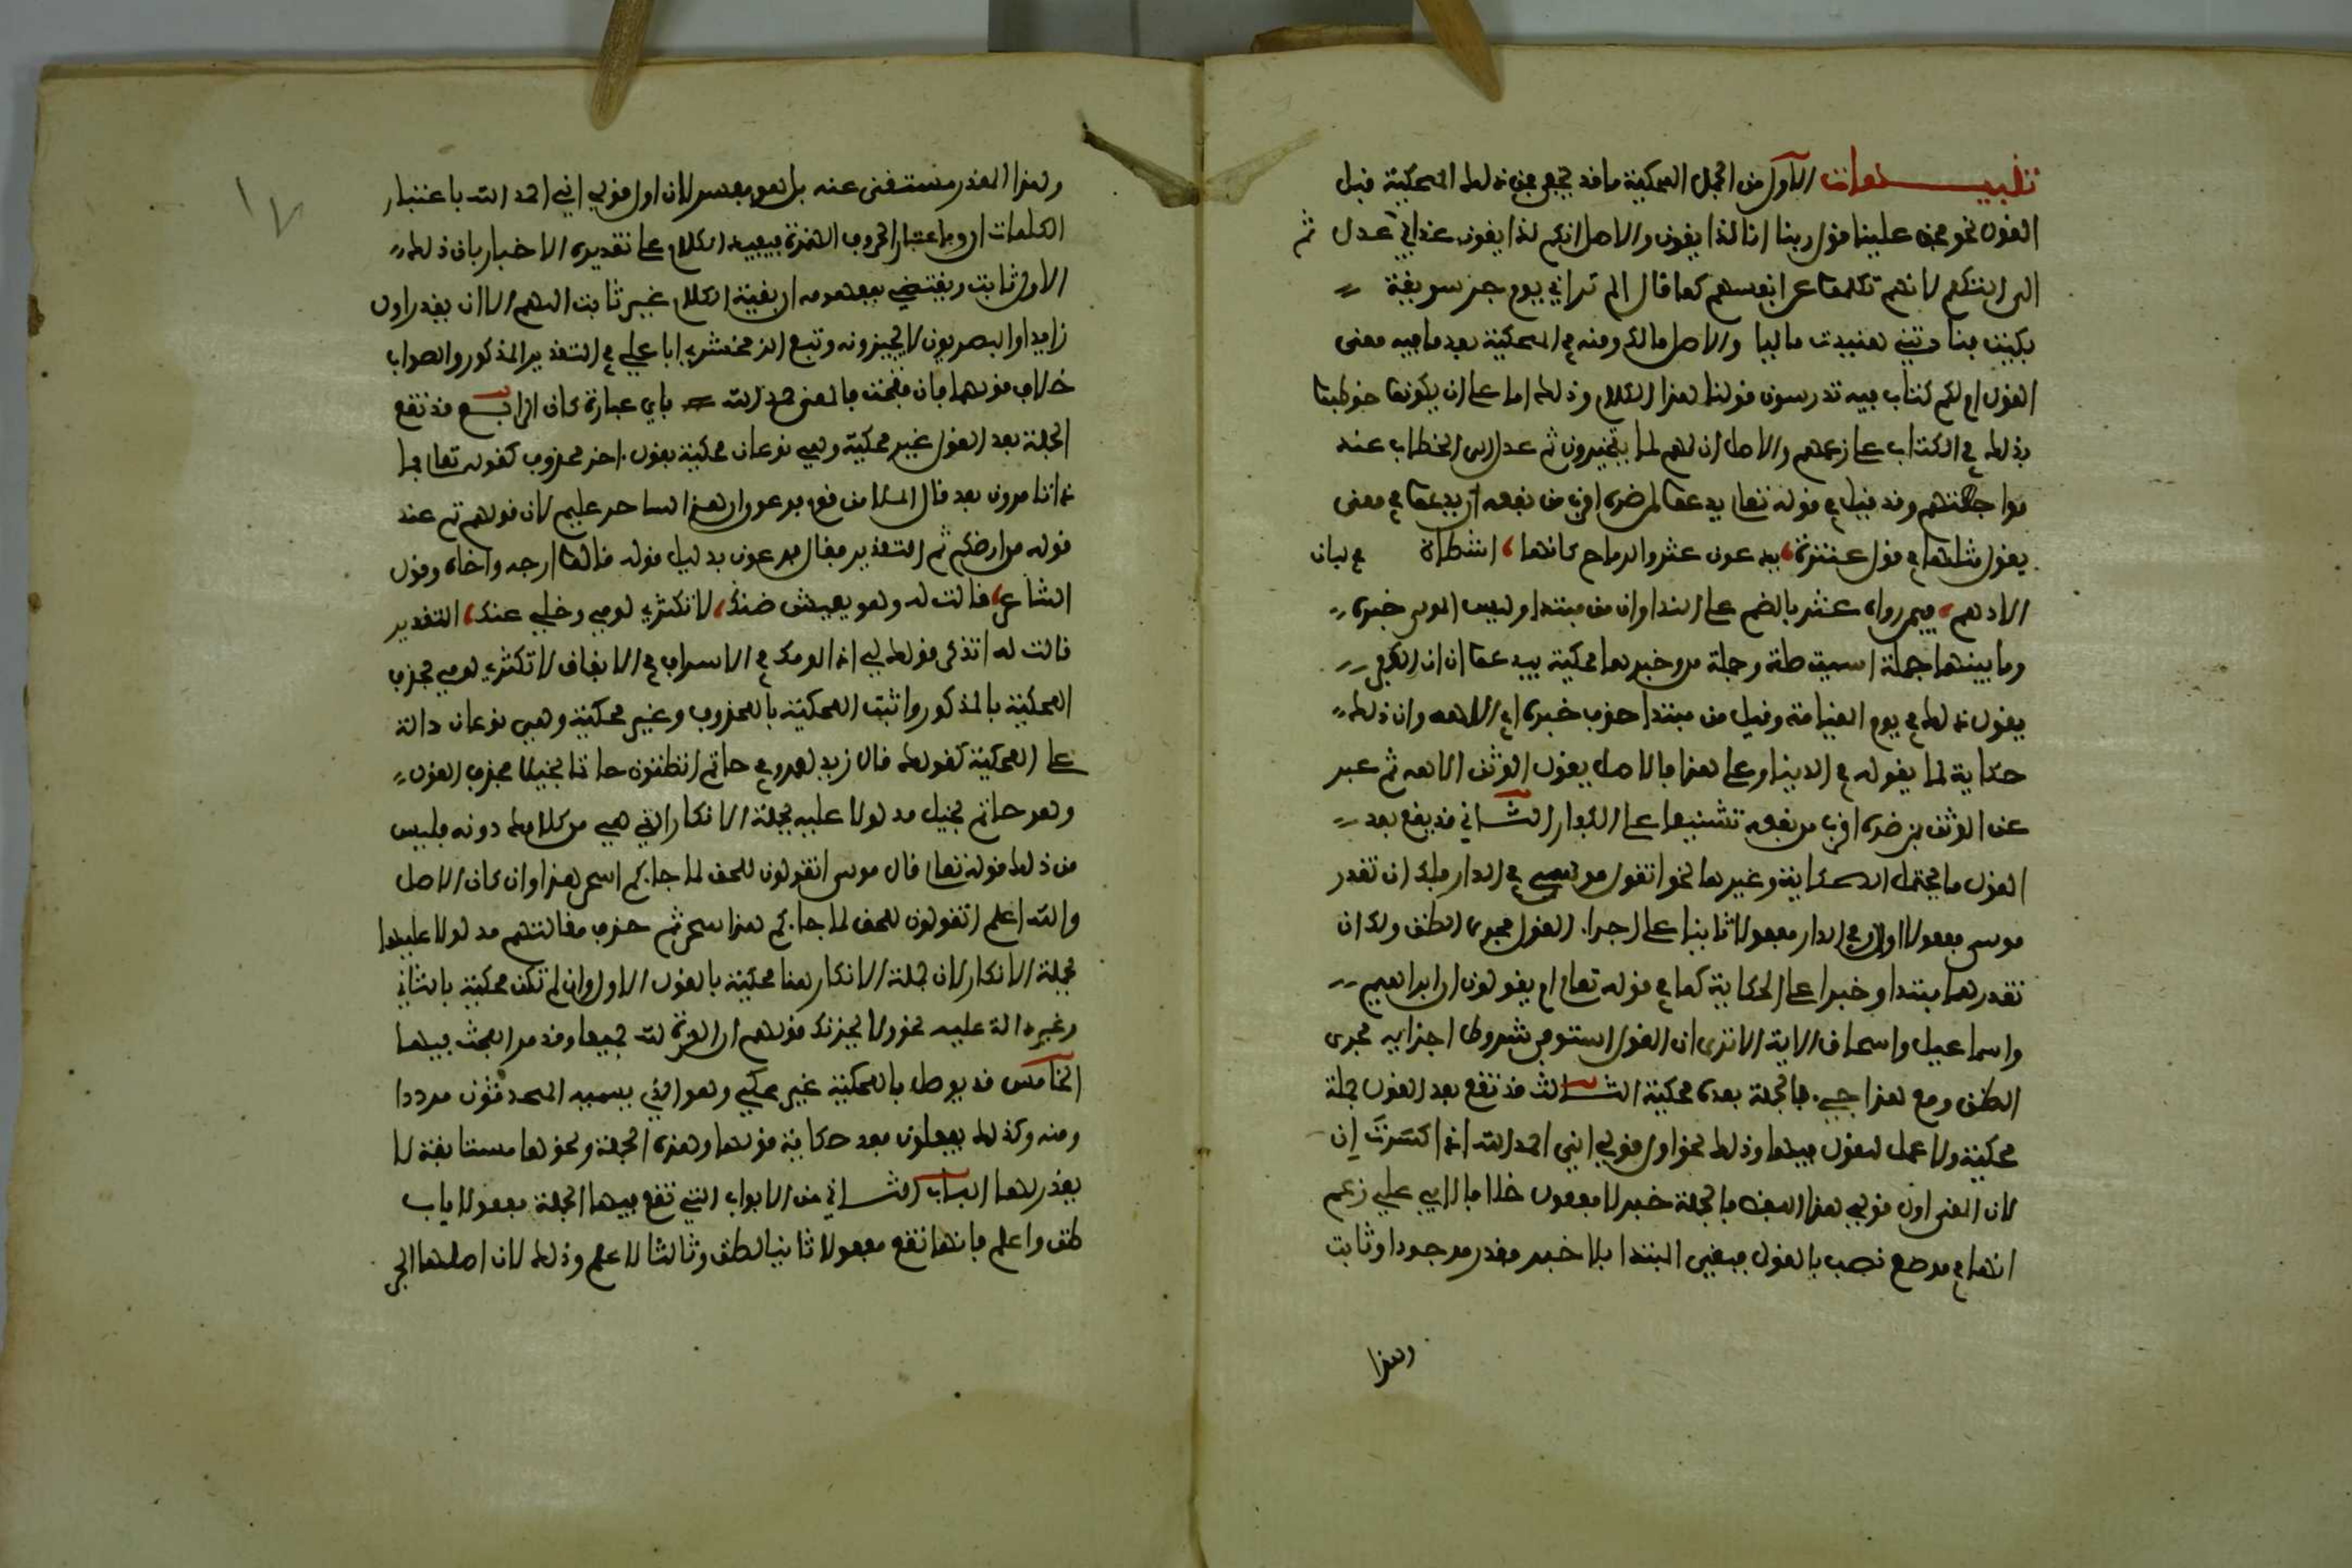 تنبيهات الاول من الجمل المحكية ما قد يخفى فمن ذلك المحكية قبل
القول نحو فحق علينا قول ربنا انا لذايقون والاصل انكم لذايقون عذابي عدل ثم
الى التكلم لانهم تكلموا عن انفسهم كما قال الم تراني يوم جو سويقة
بكيت فنادتني هنيدت ماليا والاصل مالك ومنه في المحكية بعد ما فيه معنى
القول ام لكم كتاب فيه تدرسون قولنا هذا الكلام وذلك اما على ان يكونوا خوطبوا
بذلك في الكتاب على زعمهم والاصل ان لهم لما يتخيرون ثم عدل الى الخطاب عند
مواجهتهم وقد قيل في قوله تعالى يدعوا لمن ضره اقرب من نفعه ان يدعوا في معنى
يقول مثلها في قول عنترة يدعون عنتر والرماح كانها اشطان في لبان
الادهم فيمن رواه عنتر بالضم على الندا وان من مبتدا ولبيس المولى خبره
وما بينهما جملة اسمية صلة وجملة من وخبرها محكية بيدعوا ان ان الكافر
يقول ذلك في يوم القيامة وقيل من مبتدا حذف خبره اي الاهه وان ذلك
حكاية لما يقوله في الدنيا وعلى هذا فالاصل يقول الوثن الاهه ثم عبر
عن الوثن بمن ضره اقرب من نفعه تشنيعا على الكفار الثاني قد يقع بعد
القول ما يحتمل الحكاية وغيرها نحو اتقول موسى في الدار فلك ان تقدر
موسى مفعولا اولا وفي الدار مفعولا ثانيا على اجراء القول مجرى الظن ولك ان
تقدرهما مبتدا وخبرا على الحكاية كما في قوله تعالى ام يقولون ان ابراهيم
واسماعيل واسحاق الاية الا ترى ان القول استوفى شروط اجرايه مجرى
الظن ومع هذا جيء فالجملة بعده محكية الثالث قد تقع بعد القول جملة
محكية ولا عمل للقول فيها وذلك نحو اول قولي اني احمد الله اذا كسرت ان
لان المعنى اول قولي هذا اللفظ فالجملة خبر لا مفعول خلافا لابي علي زعم
انها في موضع نصب بالقول فبقي المبتدا بلا خبر فقدر موجودا وثابت
وهذا
وهذا المقدر مستغنى عنه بل هو مفسد لان اول قولي اني احمد الله باعتبار
الكلمات ان وباعتبار الحروف الهمزة فيفيد الكلام على تقديره الاخبار بان ذلك
الاول ثابت ويقتضي بمفهومه ان بقية الكلام غير ثابت اللهم الا ان يقدر اول
زايدا والبصريون لا يجيزونه وتبع الزمخشري ابا علي في التقدير المذكور والصواب
خلاف قولهما فان فتحت فالمعنى حمد الله باي عبارة كان الرابع قد تقع
الجملة بعد القول غير محكية وهي نوعان محكية بقول اخر محذوف كقوله تعالى فما
ذا تامرون بعد قال الملا من قوم فرعون ان هذا لساحر عليم لان قولهم تم عند
قوله من ارضكم ثم التقدير فقال فرعون بدليل قوله قالوا ارجه واخاه وقول
الشاعر قالت له وهو بعيش ضنك لا تكثري لومي وخلي عنك التقدير
قالت له اتذكر قولك لي اذ الومك في الاسراف في الانفاق لا تكثري لومي فحذف
المحكية بالمذكور واثبت المحكية بالمحذوف وغير محكية وهي نوعان دالة
على المحكية كقولك قال زيد لعمرو في حاتم اتظنون حاتما بخيلا فحذف القول
وهو حاتم بخيل مدلولا عليه بجملة الانكار التي هي من كلامك دونه وليس
من ذلك قوله تعالى قال موسى اتقولون للحق لما جاءكم اسحر هذا وان كان الاصل
والله اعلم اتقولون للحق لما جاءكم هذا سحر ثم حذف مقالتهم مدلولا عليها
بجملة الانكار لان جملة الانكار هنا محكية بالقول الاول وان لم تكن محكية بالثاني
وغير دالة عليه نحو ولا يحزنك قولهم ان العزة لله جميعا وقد مر البحث فيها
الخامس قد يوصل بالمحكية غير محكي وهو الذي يسميه المحدثون مدرجا
ومنه وكذلك يفعلون بعد حكاية قولها وهذه الجملة ونحوها مستانفة لا
يقدر لها الباب الثاني من الابواب التي تقع فيها الجملة مفعولا باب
ظن واعلم فانها تقع مفعولا ثانيا لظن وثالثا لاعلم وذلك لان اصلها الخبر